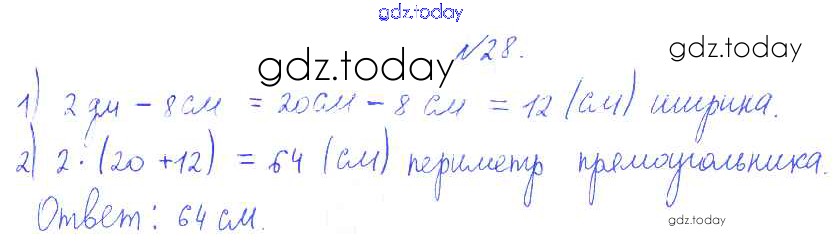 gdz.today
№28.
gdz.today
gdz.today
1) 2 дм - 8 см = 20 см - 8 см = 12 (см) ширина.
2) 2 · (20 + 12) = 64 (см) периметр прямоугольника.
Ответ: 64 см.
gdz.today